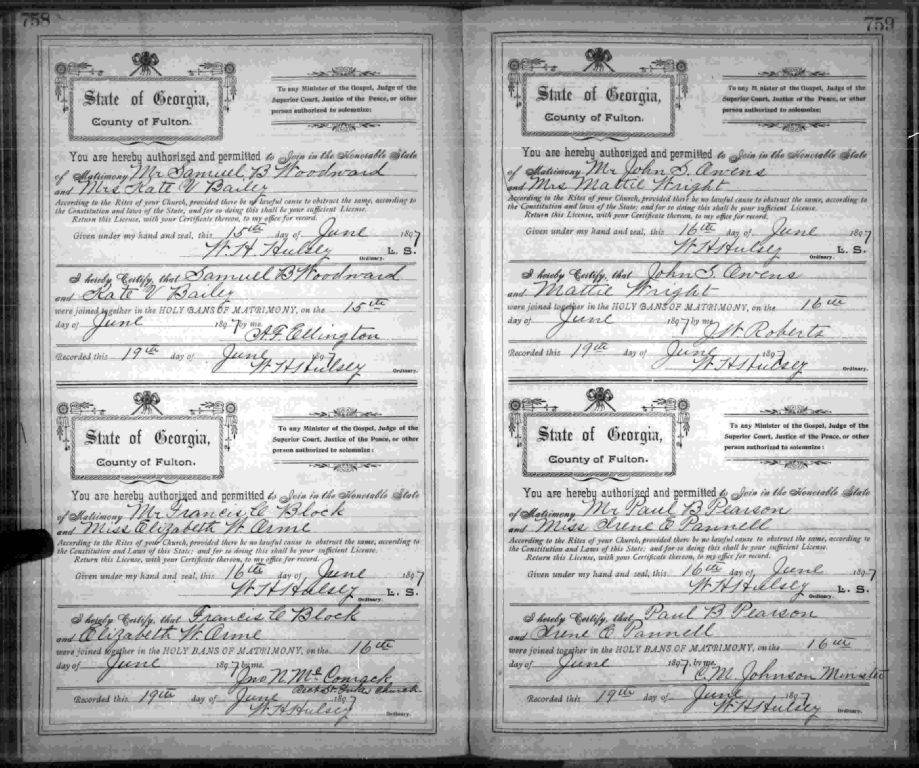 758
State of Georgia,
County of Fulton.
To any Minister of the Gospel, Judge of the
Superior Court, Justice of the Peace, or other
person authorized to solemnize:
You are hereby authorized and permitted to Join in the Honorable State
of Matrimony Mr Samuel B Woodward
and Mrs Kate V Bailey
According to the Rites of your Church, provided there be no lawful cause to obstruct the same, according to
the Constitution and laws of this State, and for so doing this shall be your sufficient License.
Return this License, with your Certificate thereon, to my office for record.
Given under my hand and seal, this 15th day of June 1897
W. H. Hulsey L. S.
Ordinary.
I hereby Certify, that Samuel B Woodward
and Kate V Bailey
were joined together in the HOLY BANS OF MATRIMONY, on the 15th
day of June 1897 by me.
A. F. Ellington
Recorded this 19th day of June 1897
W H Hulsey
Ordinary.
State of Georgia,
County of Fulton.
To any Minister of the Gospel, Judge of the
Superior Court, Justice of the Peace, or other
person authorized to solemnize:
You are hereby authorized and permitted to Join in the Honorable State
of Matrimony Mr Francis C Block
and Miss Elizabeth W. Orme
According to the Rites of your Church, provided there be no lawful cause to obstruct the same, according to
the Constitution and Laws of this State; and for so doing this shall be your sufficient License.
Return this License, with your Certificate thereon, to my office for record.
Given under my hand and seal, this 16th day of June 1897
W. H. Hulsey L. S.
Ordinary.
I hereby Certify, that Francis C Block
and Elizabeth W. Orme
were joined together in the HOLY BANS OF MATRIMONY, on the 16th
day of June 1897 by me.
Jno N McCormack
Church
Recorded this 19th day of June 1897
W H Hulsey
Ordinary.
759
State of Georgia,
County of Fulton.
To any Minister of the Gospel, Judge of the
Superior Court, Justice of the Peace, or other
person authorized to solemnize:
You are hereby authorized and permitted to Join in the Honorable State
of Matrimony Mr John S. Owens
and Mrs Mattie Wright
According to the Rites of your Church, provided there be no lawful cause to obstruct the same, according to
the Constitution and laws of the State, and for so doing this shall be your sufficient License.
Return this License, with your Certificate thereon, to my office for record.
Given under my hand and seal, this 16th day of June 1897
W H Hulsey L. S.
Ordinary.
I hereby Certify, that John S. Owens
and Mattie Wright
were joined together in the HOLY BANS OF MATRIMONY, on the 16th
day of June 1897 by me.
J. W. Roberts
Recorded this 19th day of June 1897
W H Hulsey
Ordinary.
State of Georgia,
County of Fulton.
To any Minister of the Gospel, Judge of the
Superior Court, Justice of the Peace, or other
person authorized to solemnize:
You are hereby authorized and permitted to Join in the Honorable State
of Matrimony Mr Paul B Pearson
and Miss Irene C Pannell
According to the Rites of your Church, provided there be no lawful cause to obstruct the same, according to
the Constitution and Laws of this State; and for so doing this shall be your sufficient License.
Return this License, with your Certificate thereon, to my office for record.
Given under my hand and seal, this 16th day of June 1897
W. H Hulsey L. S.
Ordinary.
I hereby Certify, that Paul B Pearson
and Irene C Pannell
were joined together in the HOLY BANS OF MATRIMONY, on the 16th
day of June 1897 by me.
C. M. Johnson Minister
Recorded this 19th day of June 1897
W H Hulsey
Ordinary.